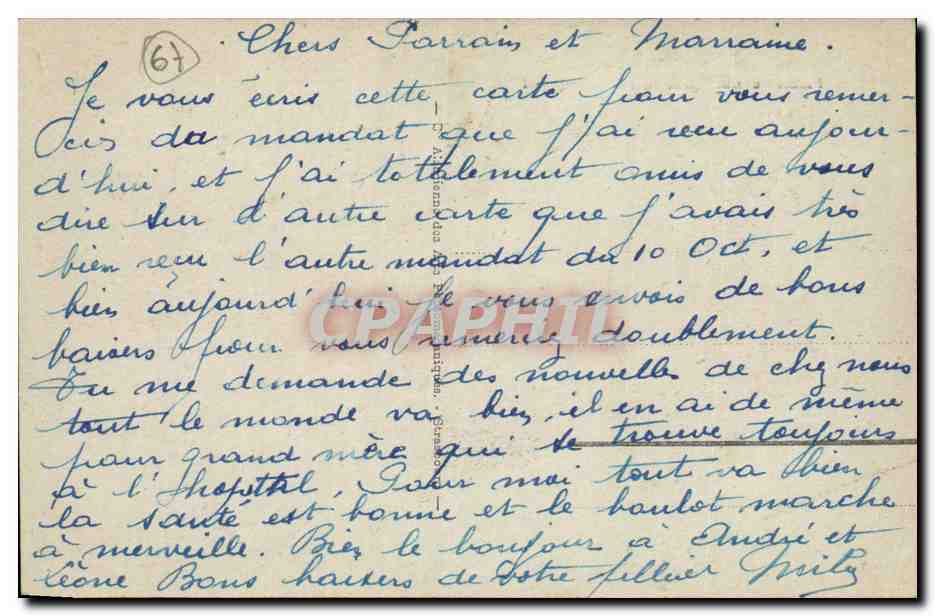 67
Chers Parrain et Marraine.
Je vous écris cette carte pour vous remer-
cier du mandat que j'ai recu aujour-
d'hui, et j'ai totalement omis de vous
dire sur l'autre carte que j'avais très
bien recu l'autre mandat du 10 Oct, et
bien aujourd'hui je vous envois de bons
baisers pour vous remerciez doublement.
Tu me demande des nouvelles de chez nous
tout le monde va bien, il en ai de même
pour grand mère qui se trouve toujours
à l'hopittal, Pour moi tout va bien
la santé est bonne et le boulot marche
à merveille. Bien le bonjour à André et
Léone Bons baisers de votre fillieul
CPAPHIL
Strasbourg